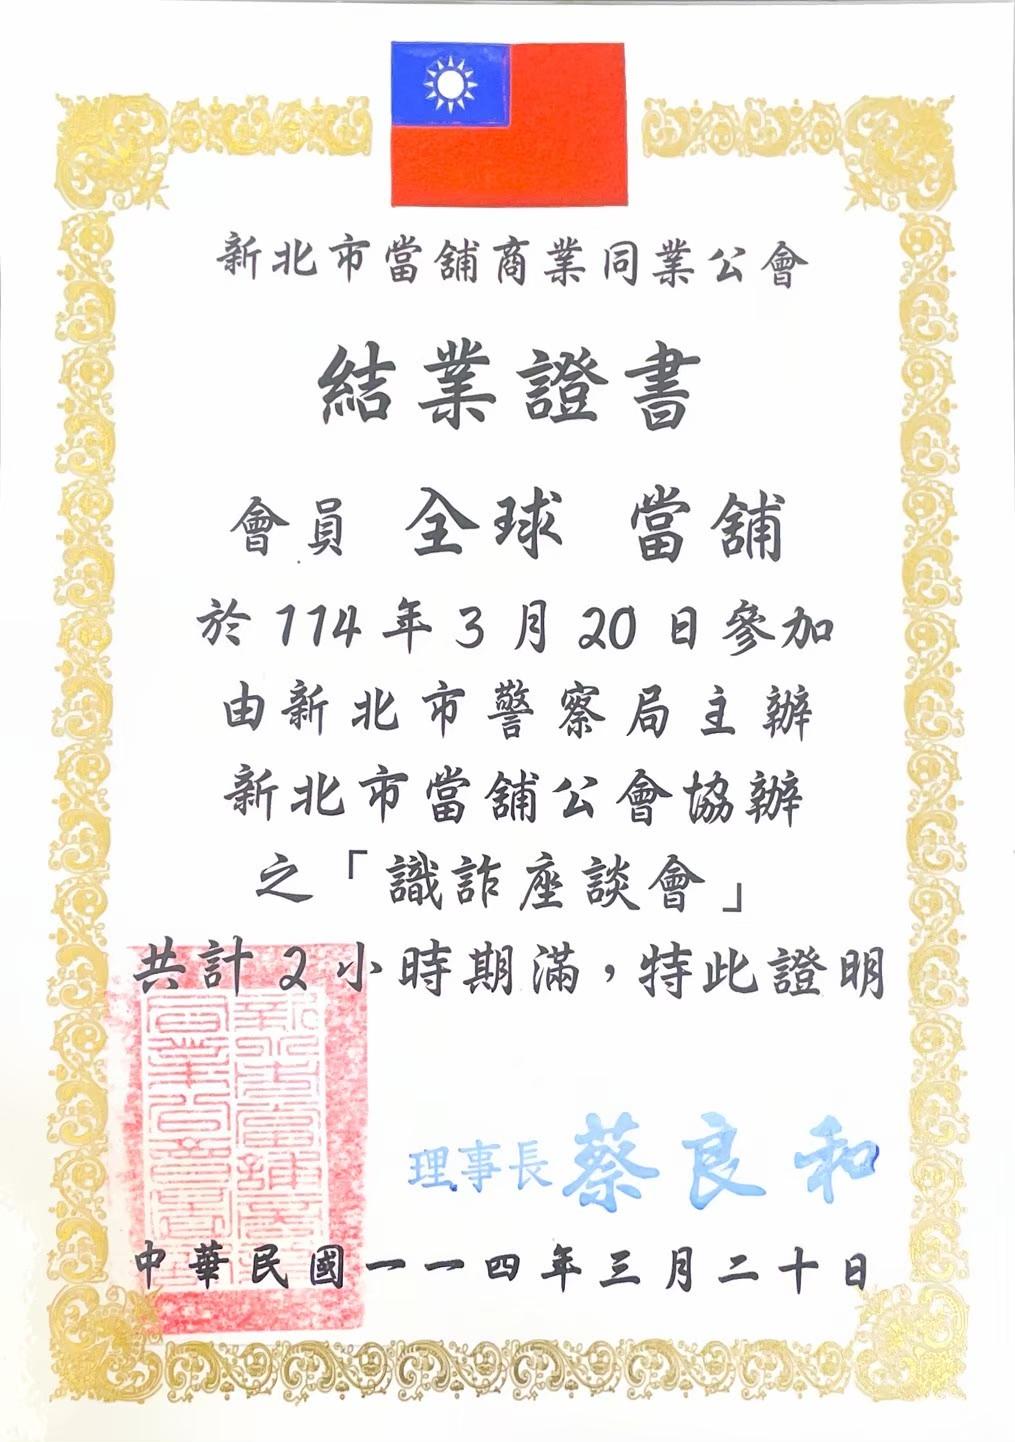 新北市當舖商業同業公會
結業證書
會員 全球 當舖
於114年3月20日參加
由新北市警察局主辦
新北市當舖公會協辦
之「識詐座談會」
共計2小時期滿,特此證明
理事長 蔡良和
中華民國一一四年三月二十日